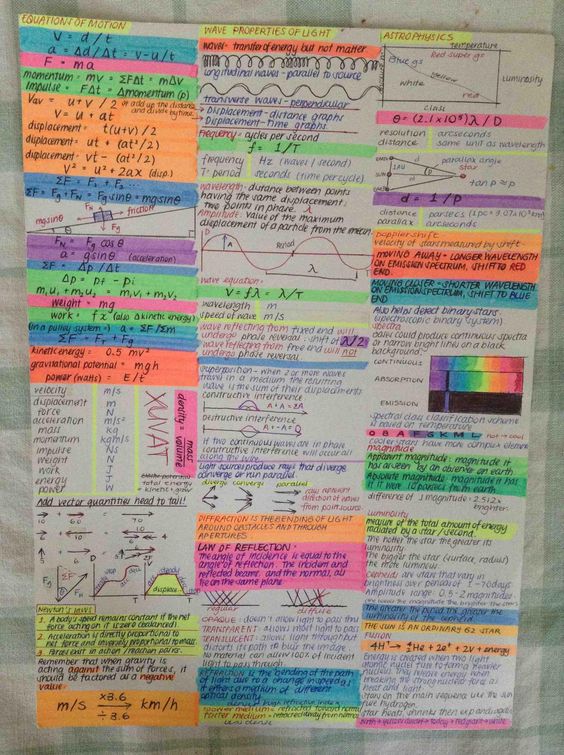 EQUATIONS OF MOTION
V = d / t
a = Δd/Δt = v-u/t
F = ma
momentum = mv = ΣFΔt = mΔv
Impulse = FΔt = Δmomentum (p)
Vav = u+v / 2 or add up the distance and divide by time
V = u + at
displacement = t(u+v)/2
displacement = ut + (at²/2)
displacement = vt - (at²/2)
V² = u² + 2ax (disp.)
ΣF = F₁ + F₂ ...
ΣF = Fg
mg sinθ
friction
mg sinθ
Fg
θ
FN = Fg cos θ
a = g sinθ (acceleration)
ΣF = Δp / Δt
Δp = pf - pi
m₁u₁ + m₂u₂ = m₁v₁ + m₂v₂
weight = mg
work = fx (also Δkinetic energy)
(in a pulley system) a = ΣF/Σm
ΣF = FT + Fg
kinetic energy = 0.5 mv²
gravitational potential = mgh
power (watts) = E/t
velocity m/s
displacement m
force N
acceleration m/s²
mass kg
momentum kgm/s
impulse Ns
weight N
work J
energy J
power W
XUVAT
density = mass / volume
total energy
add vector quantities head to tail!
Newton's laws
1. A body's speed remains constant if the net force acting on it is zero
2. Acceleration is directly proportional to net force and inversely proportional to mass
3. Forces exist in action/reaction pairs.
Remember that when gravity is
acting against the sum of forces, it
should be factored as a negative
value.
m/s ×3.6 → km/h
÷3.6
WAVE PROPERTIES OF LIGHT
wave = transfer of energy but not matter
longitudinal waves - parallel to source
transverse waves - perpendicular
→ Displacement-distance graphs
→ Displacement-time graphs
frequency = cycles per second
f = 1/T
frequency Hz (waves / second)
T = period seconds (time per cycle)
wavelength = distance between points
having the same displacement;
two points in phase. λ
Amplitude: value of the maximum
displacement of a particle from the mean.
D
A
Period
λ
wave equation:
V = fλ = λ/T
wavelength m
speed of wave m/s
wave reflecting from fixed end will
undergo phase reversal: shift of λ/2
wave reflecting from free end will not
undergo phase reversal
superposition - when 2 or more waves
travel in a medium the resulting
wave is the sum of their displacements
constructive interference
A + A = 2A
Destructive interference
If two continuous waves are in phase
constructive interference will occur all
along the wave.
Light sources produce rays that diverge
converge or run parallel.
diverge converge parallel
DIFFRACTION IS THE BENDING OF LIGHT
AROUND OBSTACLES AND THROUGH
APERTURES
LAW OF REFLECTION:
The angle of incidence is equal to the
angle of reflection. The incident and
reflected beams, and the normal, all
lie on the same plane.
regular diffuse
OPAQUE: doesn't allow light to pass thru
TRANSPARENT: allows light to pass thru
TRANSLUCENT: allows light through but
distorts its path to blur the image.
No material can allow 100% of incident
light to pass through
REFRACTION is the bending of the path
of light due to a change in speed as
it enters a medium of different
optical density
slower medium = refracted toward normal
faster medium = refracted away from normal
less dense
ASTROPHYSICS
temperature
Red super gs
Blue gs
yellow
white
red
Luminosity
class
θ = (2.1 x 10⁵) λ / D
resolution arcseconds
distance same unit as wavelength
parallax angle
star
1 AU
D
p
tan p ≈ p
d = 1 / p
distance parsecs
parallax arcseconds
Doppler shift
velocity of stars measured by shift
MOVING AWAY = LONGER WAVELENGTH
ON EMISSION SPECTRUM, SHIFT TO RED
END.
MOVING CLOSER = SHORTER WAVELENGTH
ON EMISSION SPECTRUM, SHIFT TO BLUE
END
Also helps detect binary stars
(spectroscopic binary system)
spectra
gases could produce continuous spectra
or narrow bright lines on a black
background:
CONTINUOUS
ABSORPTION
EMISSION
spectral class classification scheme
is based on temperature
O B A F G K M L
cooler stars have more complex element
magnitude
Apparent magnitude: magnitude it
has as seen by an observer on earth.
Absolute magnitude: magnitude it has
if it were 10 parsecs from earth
difference of 1 magnitude = 2.512x
brighter.
Luminosity
measure of the total amount of energy
radiated by a star / second.
The hotter the star the greater its
luminosity
The bigger the star (surface, radius)
the more luminous.
Cepheids are stars that vary in
brightness over period of 1-70 days
Amplitude range: 0.5 - 2 magnitudes
the greater the period the greater the
luminosity
THE SUN IS AN ORDINARY G2 STAR
FUSION
4H → ⁴₂He + 2e⁺ + 2v + energy
Energy is created when two light
atomic nuclei fuse to form a heavier
nucleus. They release energy when
heat and light.
stars on the main sequence like the sun
fuse hydrogen.